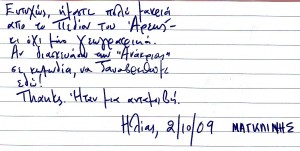 Ευτυχώς, ήμαστε πολύ μακριά
από το Πεδίον του Άρεως-
κι όχι μόνο γεωγραφικά.
Αν διασχίσουμε την "Ανάκριση"
σε καλωδια, να ξαναβρεθούμε
εδώ!
Thanks. Ήταν μια ανταμοιβή.
Ηλίας, 2/10/09 ΜΑΓΚΛΙΝΗΣ